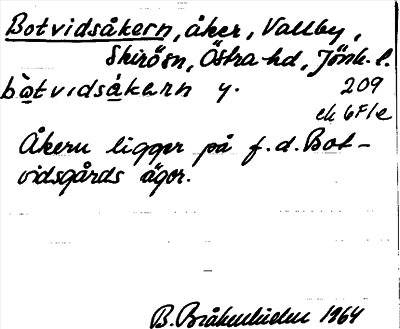 Botvidsåkern, åker, Vallby,
Skirö sn, Östra hd, Jönk. l.
bòtvidsákærn y. 209
ek 6F1e
Åkern ligger på f.d. Bot-
vidsgårds ägor.
B. 1964